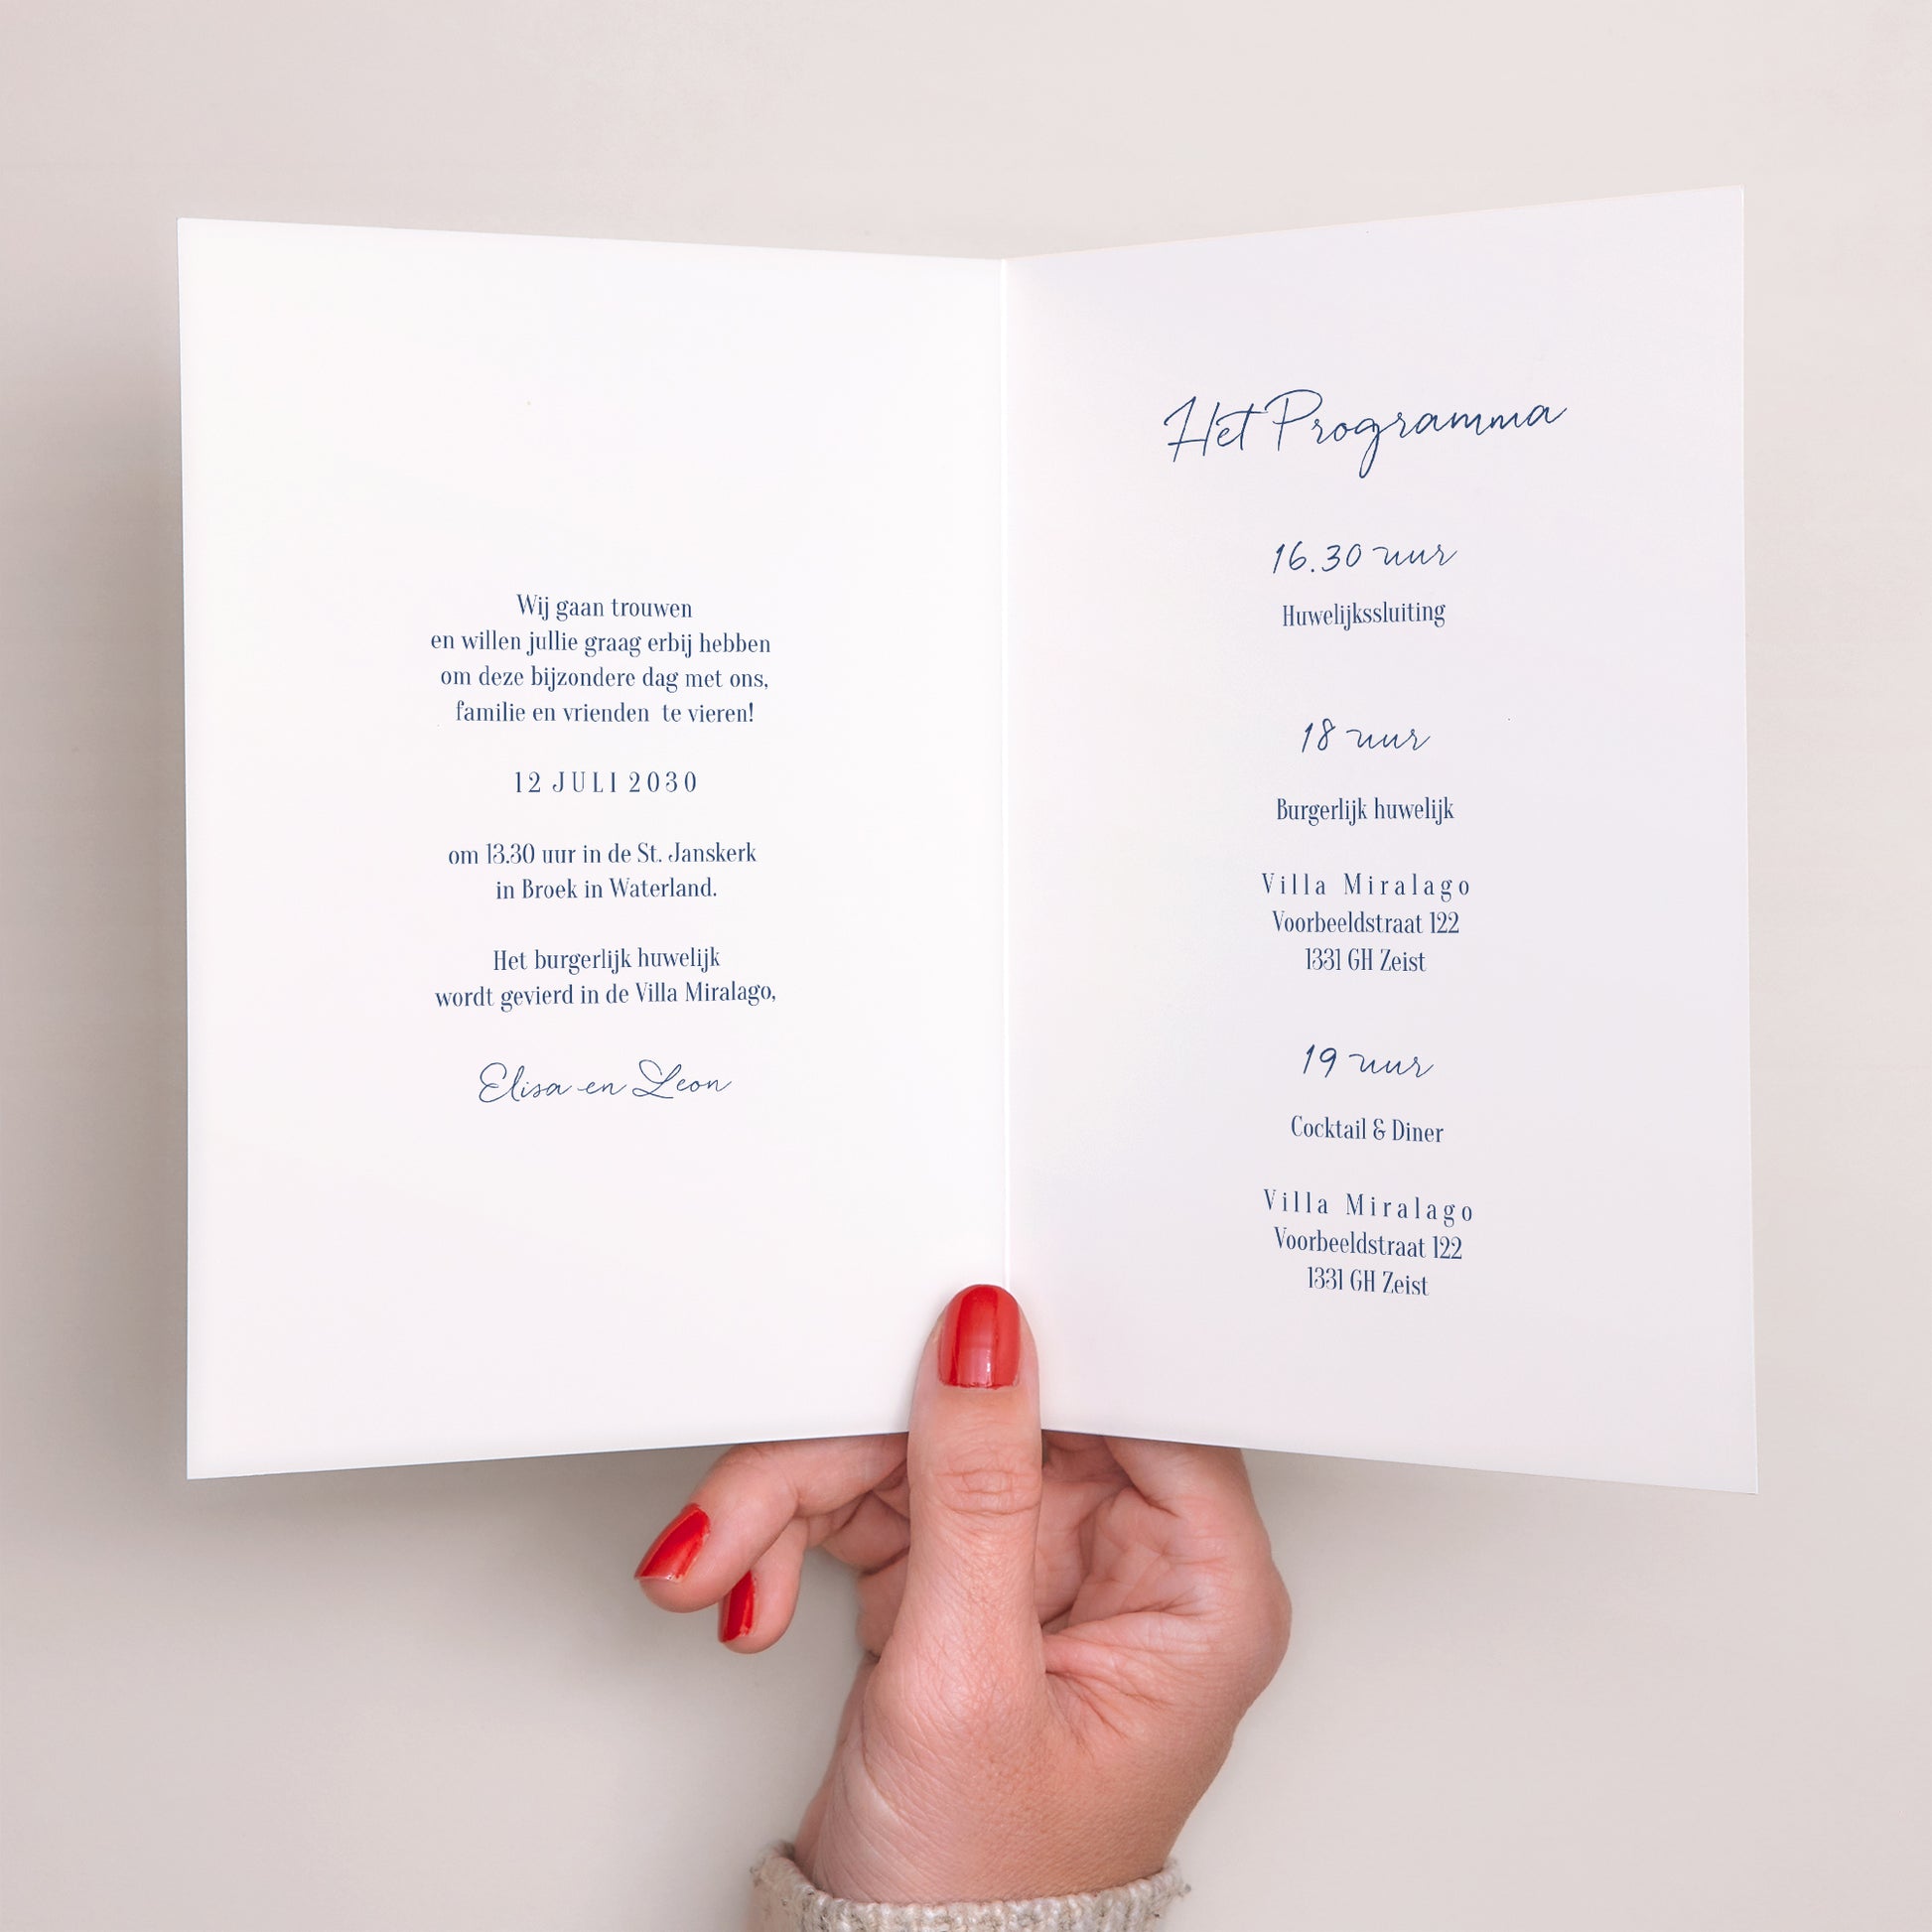 Wij gaan trouwen
en willen jullie graag erbij hebben
om deze bijzondere dag met ons,
familie en vrienden te vieren!
12 JULI 2030
om 13.30 uur in de St. Janskerk
in Broek in Waterland.
Het burgerlijk huwelijk
wordt gevierd in de Villa Miralago,
Elisa en Leon
Het Programma
16.30 uur
Huwelijkssluiting
18 uur
Burgerlijk huwelijk
Villa Miralago
Voorbeeldstraat 122
1331 GH Zeist
19 uur
Cocktail & Diner
Villa Miralago
Voorbeeldstraat 122
1331 GH Zeist